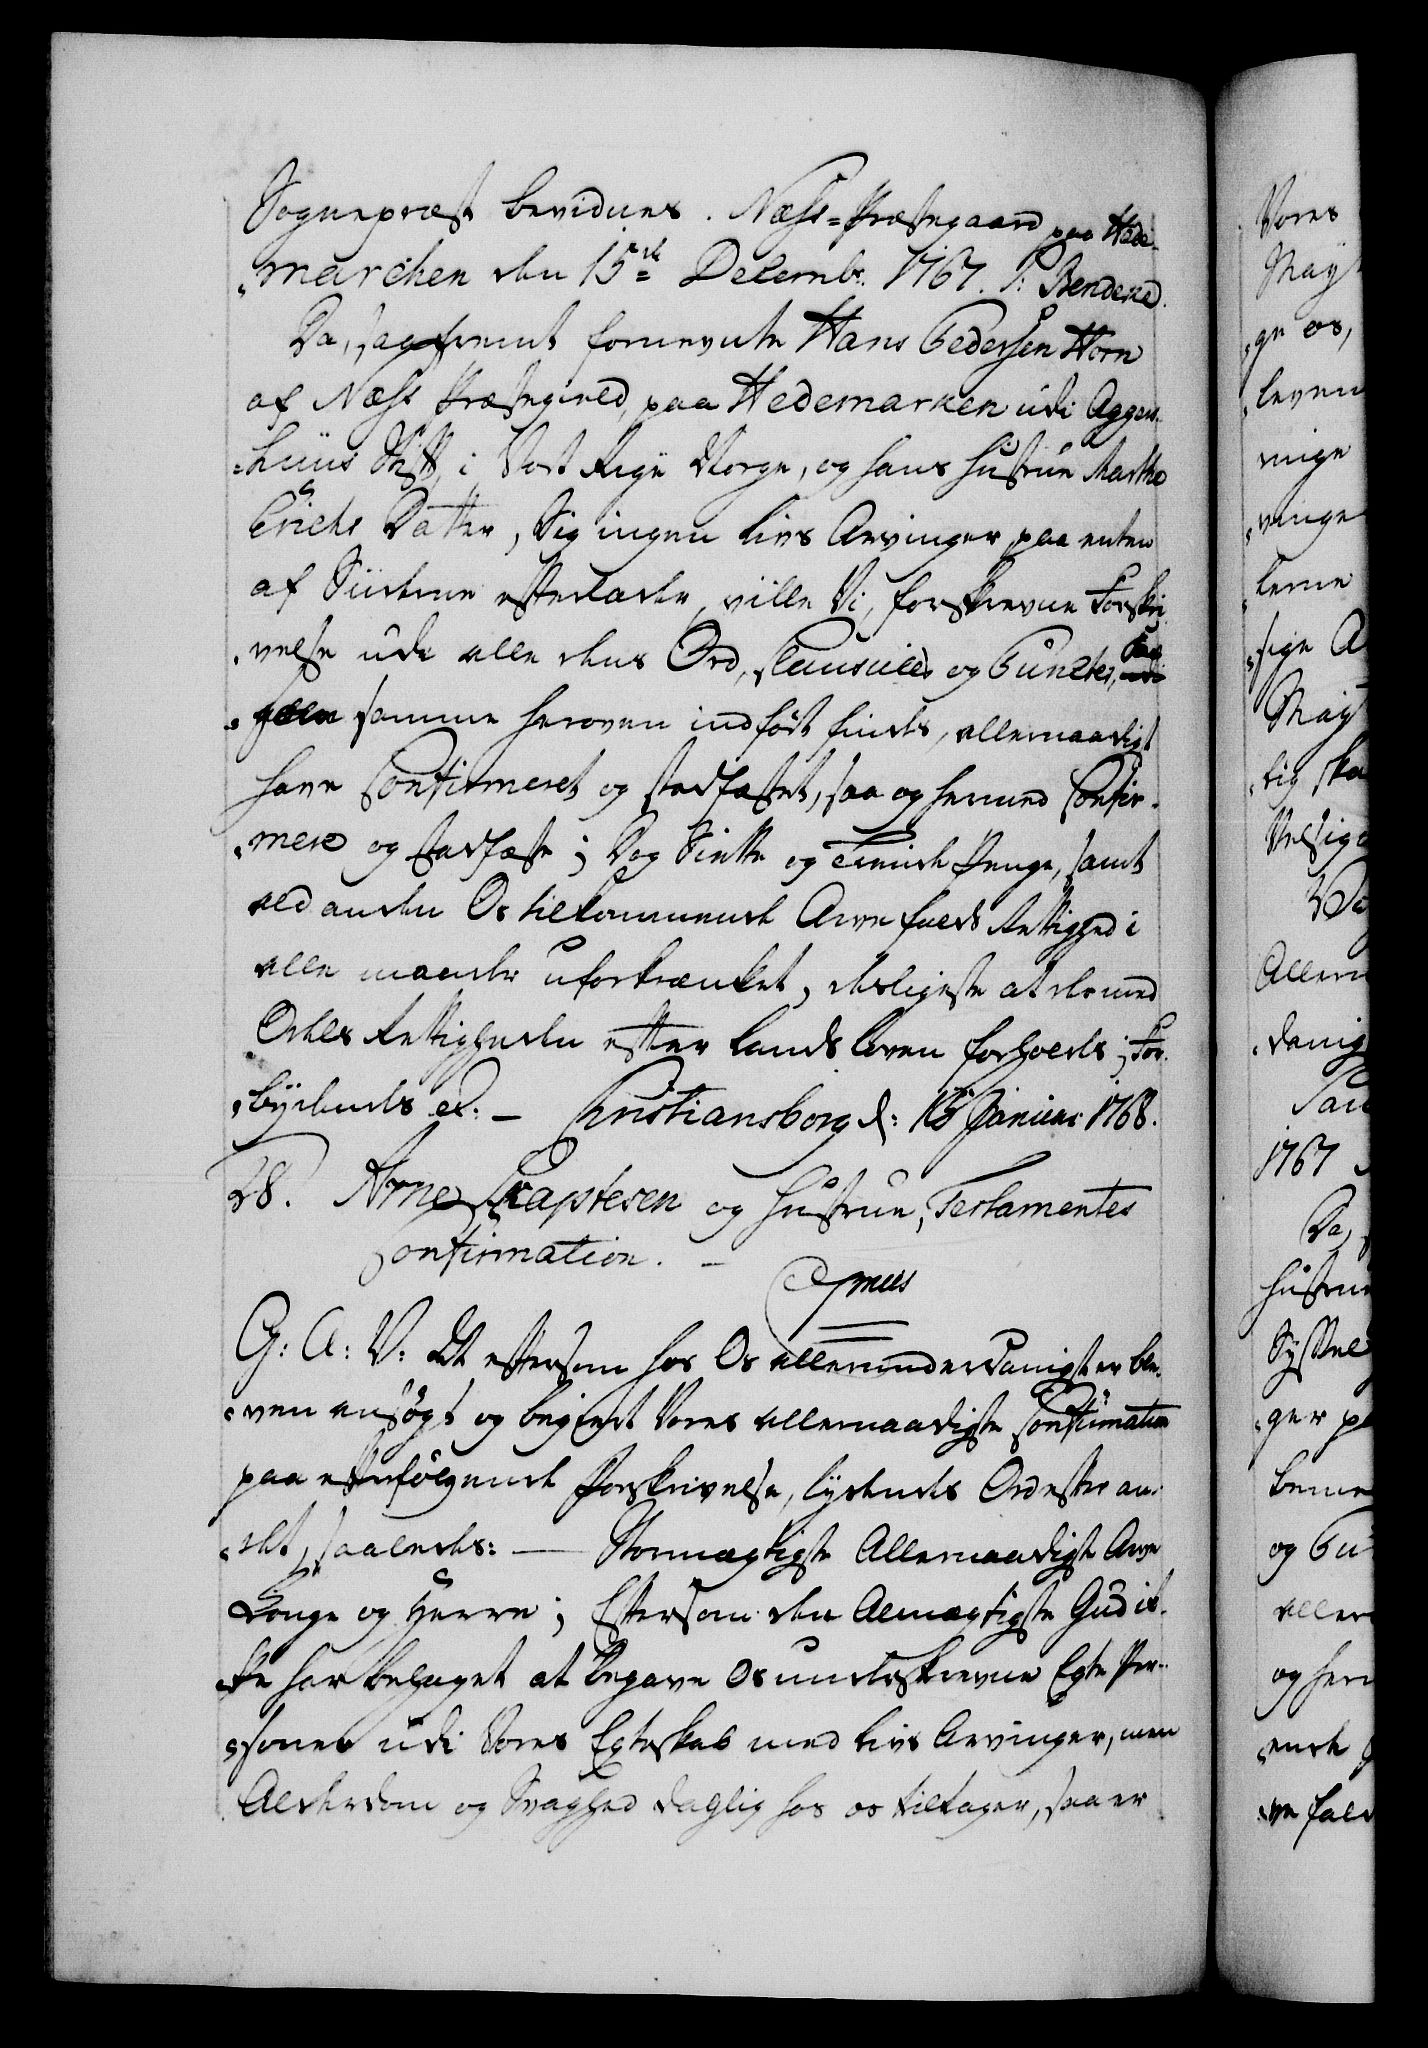 Sognepræst bevidnes. Næss-Præstegaard paa Hede-
marchen den 15de Decembr. 1767. P: Bendeke.
Da, saafremt fornevnte Hans Pedersen Horn
af Næss Præstegield paa Hedemarken udi Aggers-
huus Stift, i Vort Rige Norge, og hans Hustrue Marthe
Erichs Datter, Sig ingen Livs Arvinger paa enten
af Siiderne efterlader, ville Vi, forskrevne Forskri-
velse udi alle dens Ord, Clausuler og Puncter, saa
som samme heroven indført findes, allernaadigst
have Confirmeret og stadfæstet, saa og hermed Confir-
mere og stadfæste; Dog Siette og Tiende Penge, samt
ald anden Os tilkommende Arve falds Rettighed i
alle maader uforkrænket, desligeste at dermed
Odels Rettigheden efter Lands Loven forholdes; For-
bydendes etc: — Christiansborg d: 15 Januar: 1768.
28. Arne Skaptesen og Hustrue, Testamentes
Confirmation. —
G: A: V: At eftersom hos Os allerunderdanigst er ble-
ven ansøgt og begiert Vores allernaadigste Confirmation
paa efterfølgende Forskrivelse, lydendes Ord efter an-
det, saaledes: — Stormægtigste Allernaadigste Arve
Konge og Herre; Eftersom den Almægtigste Gud ik-
ke har behaget at begave Os underskrevne Egte Per-
soner udi Vores Egteskab med Livs Arvinger, men
Alderdom og Svaghed daglig hos os tiltager, saa er
Vores
May
ge os,
leven
ringe
vinge
lerne
sige A
May
lig ska
Velsig
Allern
danig
1767
Da,
Hustrue
Syssel
ger pa
beme
og Pu
aller
og her
ende
ve fald